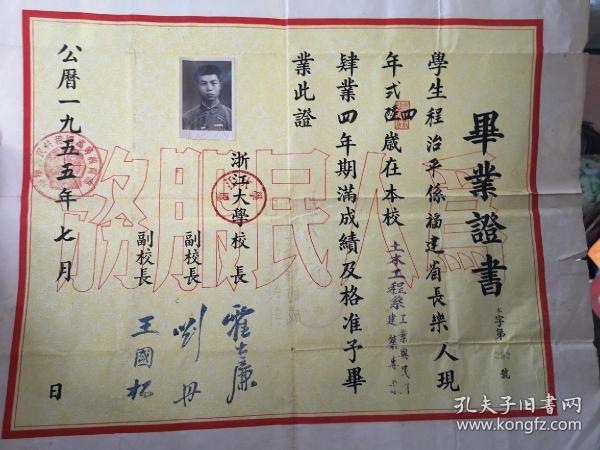 畢業證書
本字第252號
學生程治平係福建省長樂人現
年弍拾四歲在本校土木工程系工業與民用建築專業
肄業四年期滿成績及格准予畢
業此證
浙江大學校長 霍士廉
副校長 劉丹
副校長 王國松
公曆一九五五年七月 日
為人民服務
孔夫子旧书网
www.kongfz.com